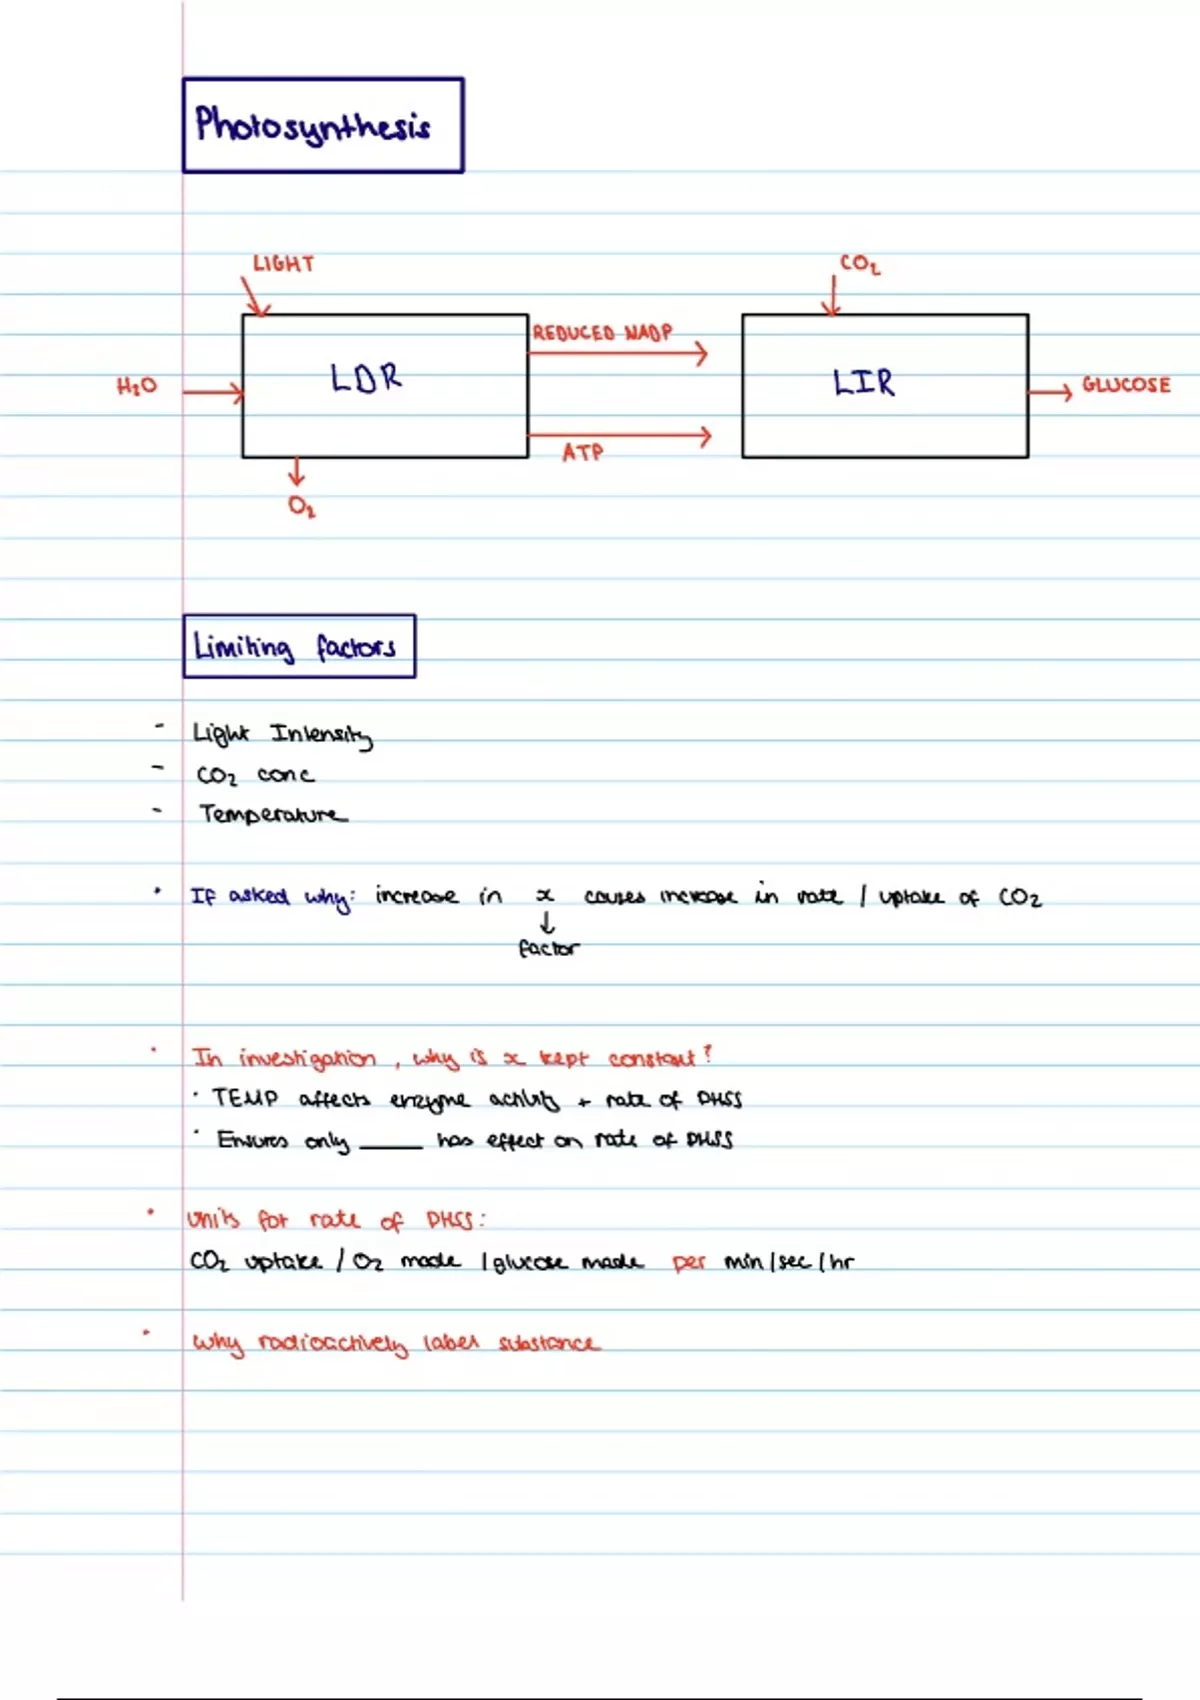 Photosynthesis
LIGHT
CO₂
REDUCED NADP
H₂O
LDR
LIR
GLUCOSE
ATP
O₂
Limiting factors
- Light Intensity
- CO₂ conc
- Temperature
• If asked why: increase in x causes increase in rate / uptake of CO₂
↓
factor
• In investigation, why is x kept constant?
• TEMP affects enzyme activity + rate of PHSS
• Ensures only _____ has effect on rate of PHSS
• Units for rate of PHSS:
CO₂ uptake / O₂ made / glucose made per min / sec / hr
• why radioactively label substance